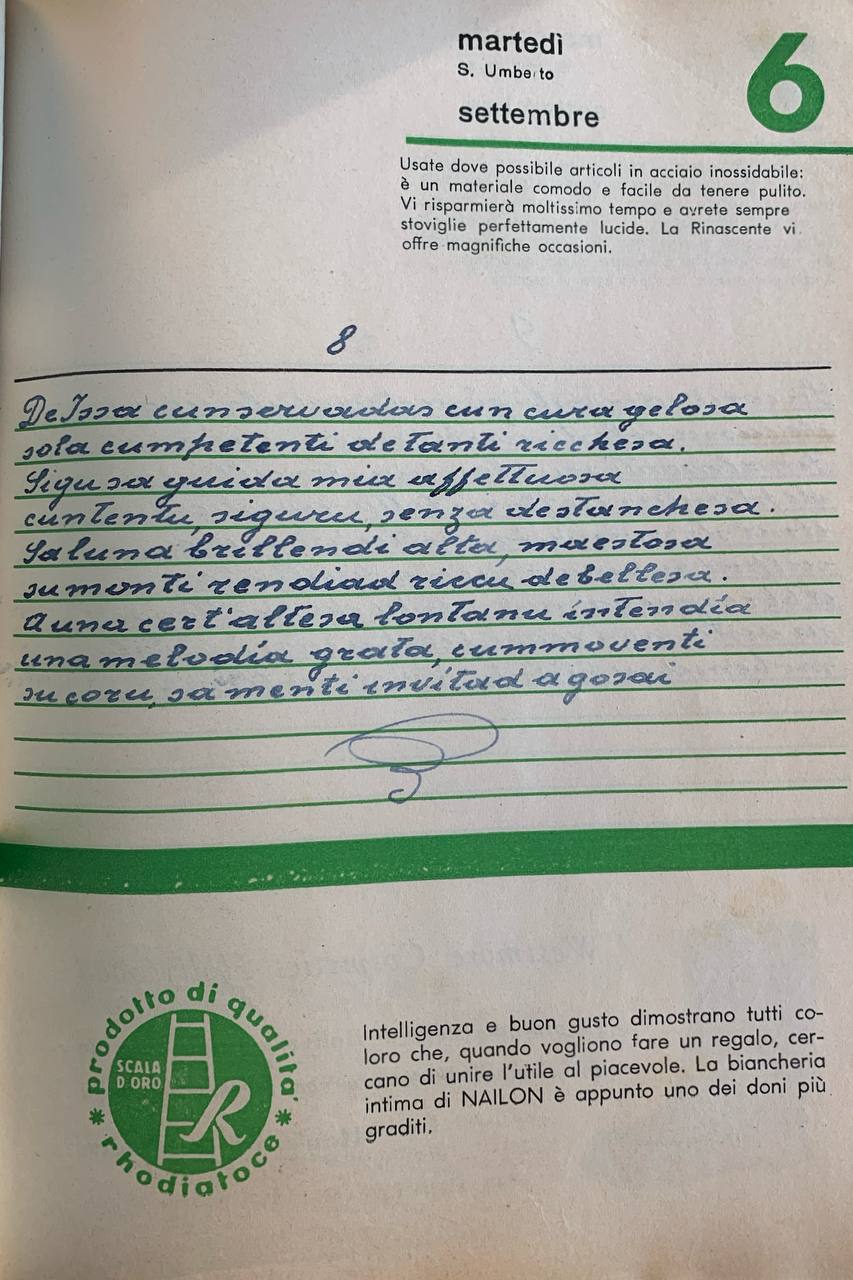 martedì
S. Umberto
settembre
6
Usate dove possibile articoli in acciaio inossidabile:
è un materiale comodo e facile da tenere pulito.
Vi risparmierà moltissimo tempo e avrete sempre
stoviglie perfettamente lucide. La Rinascente vi
offre magnifiche occasioni.
8
De Issa cunservadas cun cura gelosa
sola cumpetenti de tanti ricchesa.
Sigu sa guida mia affettuosa
cuntentu, siguru, senza de stanchesa.
Sa luna brillendi alta, maestosa
su monti rendiad riccu de bellesa.
A una cert'altesa lontanu intendia
una melodia grata, cummoventi
su coru, sa menti invitad a gosai
prodotto di qualità
SCALA
D'ORO
R
rhodiatoce
Intelligenza e buon gusto dimostrano tutti co-
loro che, quando vogliono fare un regalo, cer-
cano di unire l'utile al piacevole. La biancheria
intima di NAILON è appunto uno dei doni più
graditi.